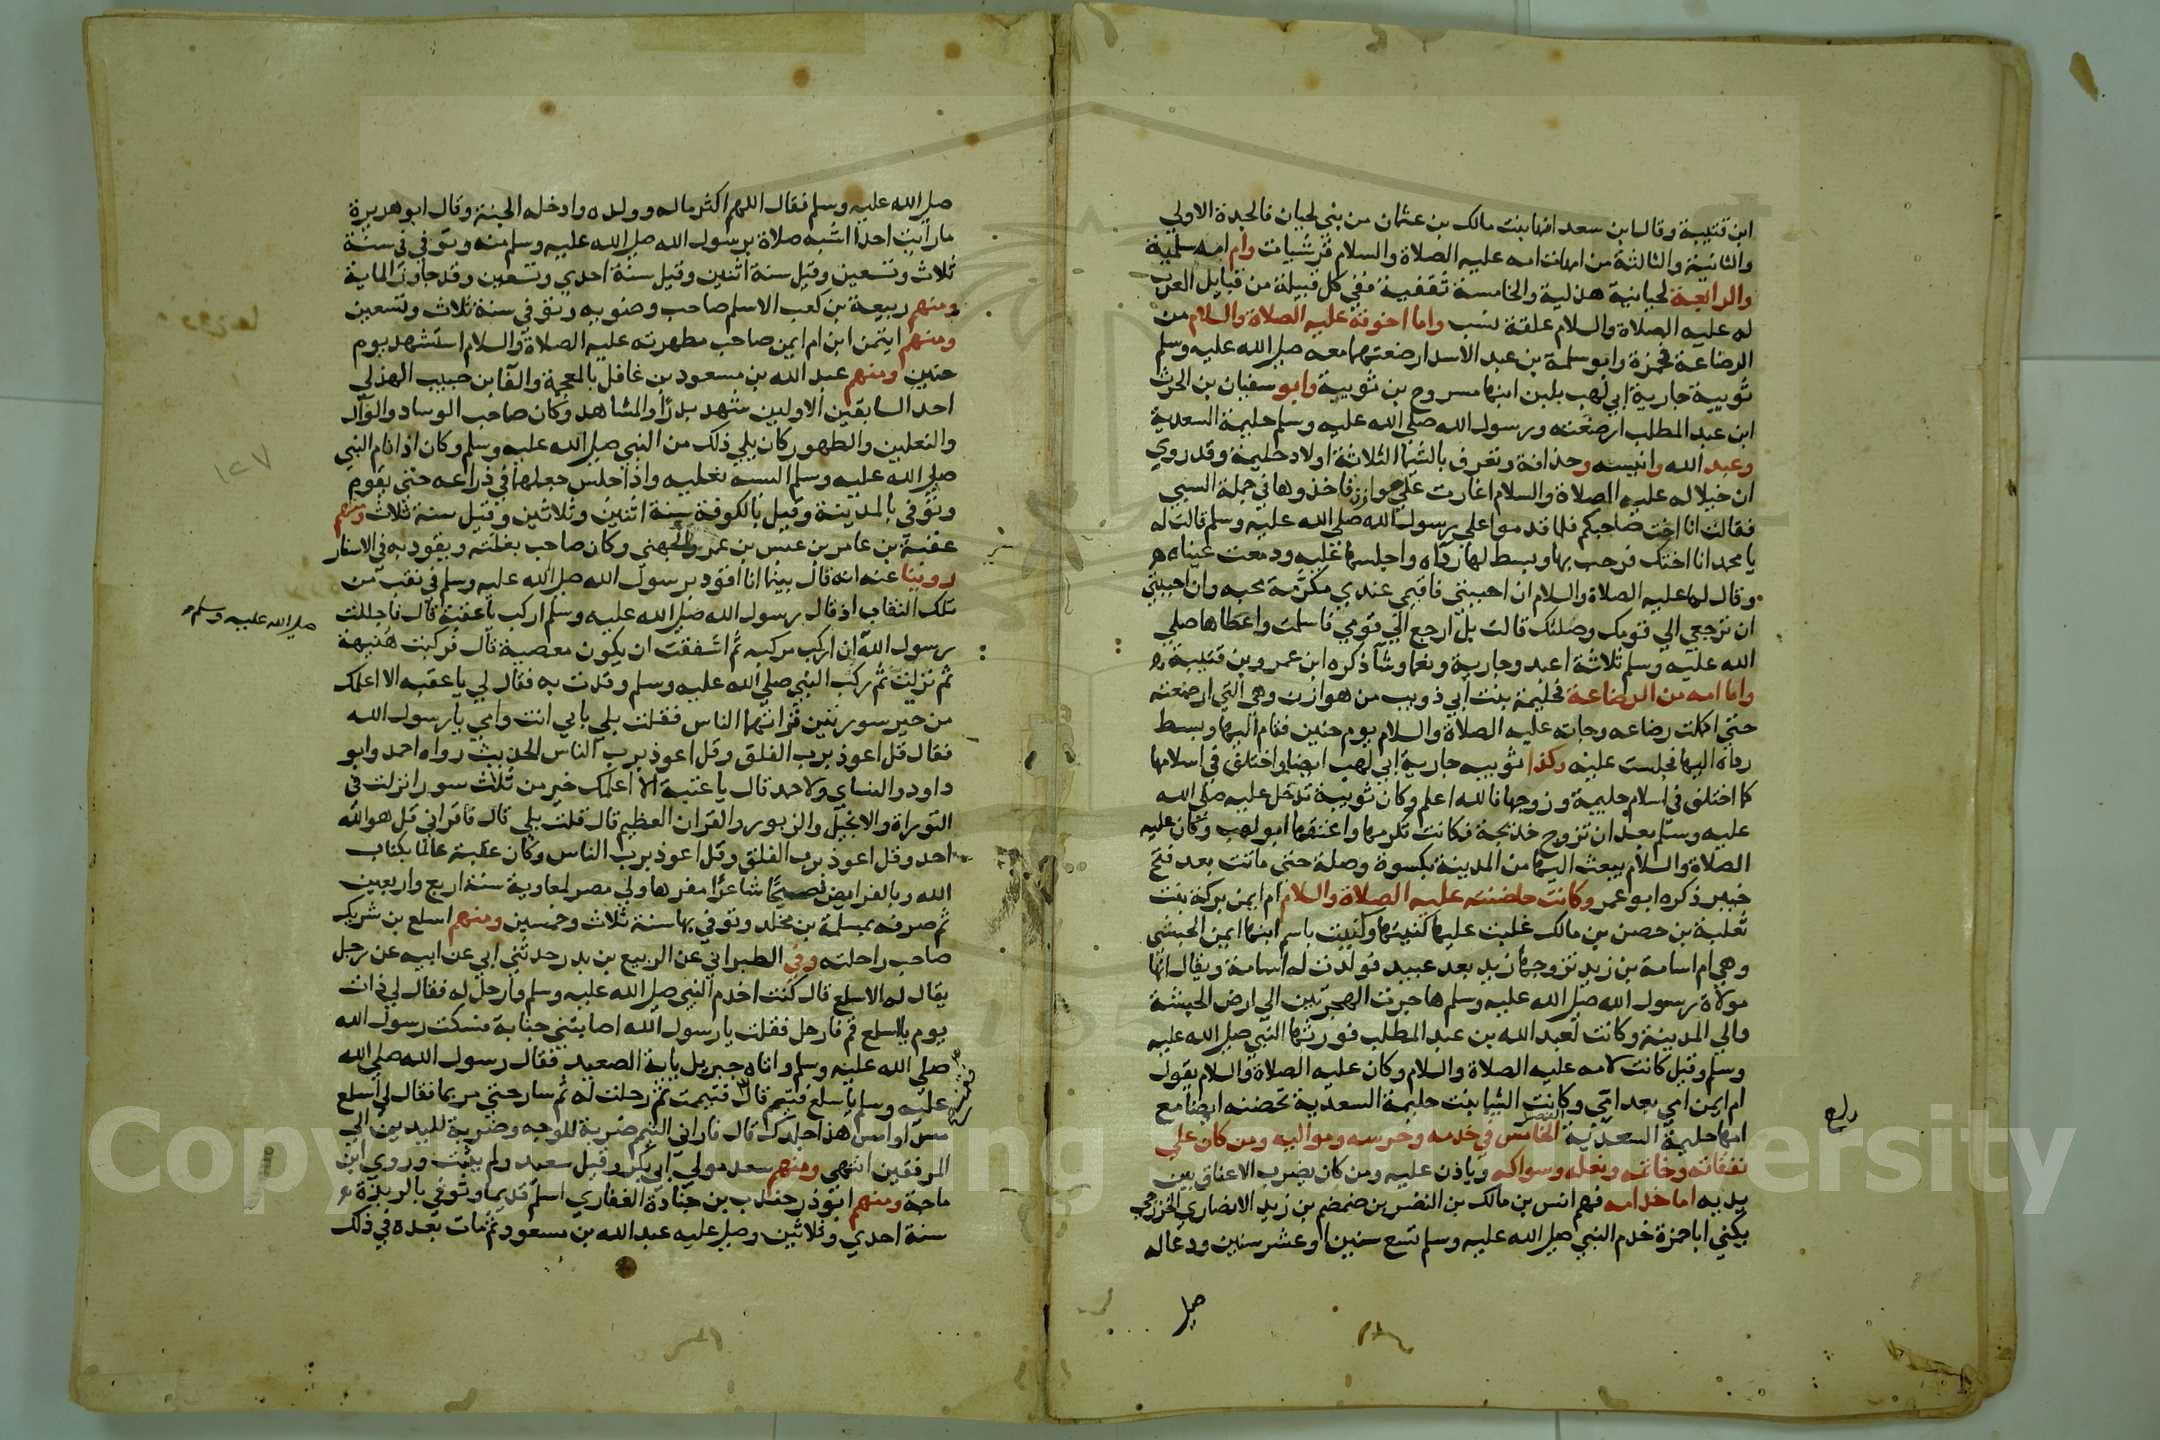 ابن قتيبة وقال ابن سعد انها بنت مالك بن عثمان من بني لحيان فالجدة الاولي
والثانية والثالثة من امهات امه عليه الصلاة والسلام قرشيات وام امه سلمية
والرابعة لحيانية هذلية والخامسة ثقفية ففي كل قبيلة من قبايل العرب
له عليه الصلاة والسلام علقة نسب واما اخوته عليه الصلاة والسلام من
الرضاعة فحمزة وابو سلمة بن عبد الاسد ارضعتهما معه صلى الله عليه وسلم
ثويبة جارية ابي لهب بلبن ابنها مسروح بن ثويبة وابو سفيان بن الحرث
ابن عبد المطلب ارضعته ورسول الله صلى الله عليه وسلم حليمة السعدية
وعبد الله وانيسه وحذافة وتعرف بالشيما الثلاثة اولاد حليمة وقد روي
ان خيلا له عليه الصلاة والسلام اغارت علي هوازن فاخذوها في جملة السبي
فقالت انا اخت صاحبكم فلما قدموا علي رسول الله صلى الله عليه وسلم قالت له
يا محمد انا اختك فرحب بها وبسط لها رداه واجلسها عليه ودمعت عيناه
وقال لها عليه الصلاة والسلام ان احببتي فاقيمي عندي مكرمة محبه وان احببتي
ان ترجعي الي قومك وصلتك قالت بل ارجع الي قومي فاسلمت واعطاها صلى
الله عليه وسلم ثلاثة اعبد وجارية ونعما وشا ذكره ابن عمر وبن قتيبة
واما امه من الرضاعة فحليمة بنت ابي ذويب من هوازن وهي التي ارضعته
حتي اكملت رضاعه وجاته عليه الصلاة والسلام يوم حنين فقام اليها وبسط
رداه اليها فجلست عليه وكذا ثويبه جارية ابي لهب ايضا واختلف في اسلامها
كما اختلف في اسلام حليمة وزوجها فالله اعلم وكان ثويبة تدخل عليه صلى الله
عليه وسلم بعد ان تزوج خديجة فكانت تكرمها واعتقها ابو لهب وكان عليه
الصلاة والسلام يبعث اليها من المدينة بكسوة وصلة حتي ماتت بعد فتح
خيبر ذكره ابو عمر وكانت حاضنته عليه الصلاة والسلام ام ايمن بركة بنت
ثعلبة بن حصن بن مالك غلبت عليها كنيتها وكنيت باسم ابنها ايمن الحبشي
وهي ام اسامة بن زيد تزوجها زيد بعد عبيد فولدت له اسامة ويقال انها
مولاة رسول الله صلى الله عليه وسلم هاجرت الهجرتين الي ارض الحبشة
والي المدينة وكانت لعبد الله بن عبد المطلب فورثها النبي صلى الله عليه
وسلم وقيل كانت لامه عليه الصلاة والسلام وكان عليه الصلاة والسلام يقول
ام ايمن امي بعد امي وكانت الشيما بنت حليمة السعدية تحضنه ايضا مع
امها حليمة السعدية الفصل الخامس في خدمه وحرسه ومواليه ومن كان علي
نفقاته وخاتمه ونعله وسواكه وياذن عليه ومن كان يضرب الاعناق بين
يديه اما خدامه فهم انس بن مالك بن النضر بن ضمضم بن زيد الانصاري الخزرجي
يكني ابا حمزة خدم النبي صلى الله عليه وسلم تسع سنين او عشر سنين ودعا له
صلى
صلى الله عليه وسلم فقال اللهم اكثر ماله وولده وادخله الجنة وقال ابو هريرة
ما رايت احدا اشبه صلاة برسول الله صلى الله عليه وسلم منه وتوفي في سنة
ثلاث وتسعين وقيل سنة اثنين وقيل سنة احدي وتسعين وقد جاوز الماية
ومنهم ربيعة بن كعب الاسلم صاحب وضويه وتوفي سنة ثلاث وتسعين
ومنهم ايمن ابن ام ايمن صاحب مطهرته عليه الصلاة والسلام استشهد يوم
حنين ومنهم عبد الله بن مسعود بن غافل بالمعجمة والفا بن حبيب الهذلي
احد السابقين الاولين شهد بدرا والمشاهد وكان صاحب الوساد والواك
والنعلين والطهور كان يلي ذلك من النبي صلى الله عليه وسلم وكان اذا قام النبي
صلى الله عليه وسلم البسه نعليه واذا جلس جعلهما في ذراعه حتي يقوم
وتوفي بالمدينة وقيل بالكوفة سنة اثنين وثلاثين وقيل سنة ثلاث ومنهم
عقبة بن عامر بن عبس بن عمرو الجهني وكان صاحب بغلته ويقود به في الاسفار
روينا عنه انه قال بينما انا اقود برسول الله صلى الله عليه وسلم في نقب من
تلك النقاب اذ قال رسول الله صلى الله عليه وسلم اركب يا عقبة قال فاجللت
صلى الله عليه وسلم
رسول الله ان اركب مركبه ثم اشفقت ان يكون معصية قال فركبت هنيهة
ثم نزلت ثم ركب النبي صلى الله عليه وسلم وقدت به فقال لي يا عقبه الا اعلمك
من خير سورتين قرا بهما الناس فقلت بلي بابي انت وامي يا رسول الله
فقال قل اعوذ برب الفلق وقل اعوذ برب الناس الحديث رواه احمد وابو
داود والنساي ولاحمد قال يا عقبة الا اعلمك خير من ثلاث سور انزلت في
التوراة والانجيل والزبور والقران العظيم قال قلت بلي قال فاقراني قل هو الله
احد وقل اعوذ برب الفلق وقل اعوذ برب الناس وكان عقبة عالما بكتاب
الله وبالفرايض فصيحا شاعرا مفرها ولي مصر لمعاوية سنة اربع واربعين
ثم صرفه بمسلمة بن مخلد وتوفي بها سنة ثلاث وخمسين ومنهم اسلع بن شريك
صاحب راحلته وفي الطبراني عن الربيع بن بدر حدثني ابي عن ابيه عن رجل
يقال له الاسلع قال كنت اخدم النبي صلى الله عليه وسلم وارحل له فقال لي ذات
يوم يا اسلع قم فارحل فقلت يا رسول الله اصابتني جنابة فسكت رسول الله
صلى الله عليه وسلم واتاه جبريل باية الصعيد فقال رسول الله صلى الله
عليه وسلم يا اسلع فتيمم قال فتيممت ثم رحلت له ثم سار حتي مر بما فقال لي اسلع
مس او امس هذا جلدك قال فاراني التيمم ضربة للوجه وضربة لليدين الي
المرفقين انتهي ومنهم سعد مولي ابي بكر وقيل سعيد ولم يثبت وروي ابن
ماجة ومنهم ابو ذر جندب بن جنادة الغفاري اسلم قديما وتوفي بالربذة
سنة احدي وثلاثين وصلى عليه عبد الله بن مسعود ثم مات بعده في ذلك
Copyright King University